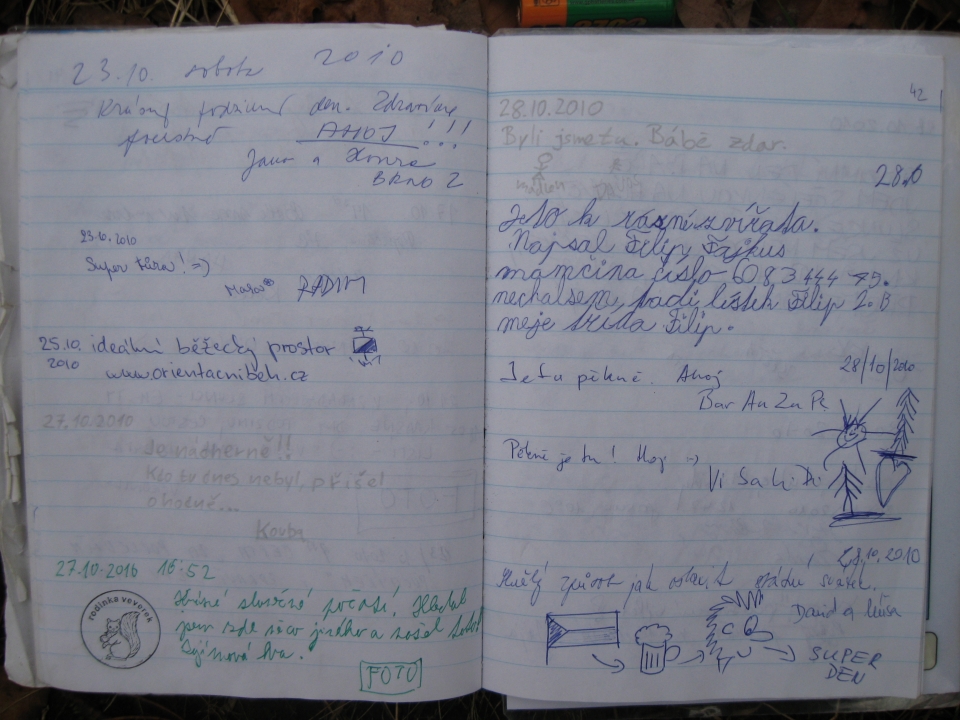 23.10. sobota 2010
Krásný podzimní den. Zdravíme
AHOJ !!!
Jana a Honza
BRNO 2
23.10.2010
Super túra! =)
RADIM
25.10. ideální běžecký prostor
2010
www.orientacnibeh.cz
27.10.2010
Je nádherně!!
Kdo tu dnes nebyl, přišel
o hodně...
27.10.2010 16:52
rodinka veverek
slunečné počasí! Hledal
jsem zde něco jiného a našel
FOTO
42
28.10.2010
Byli jsme tu. Bábě zdar.
28.0
Jeto k rázné zvířata.
Napsal Filip Fajkus
mamčina číslo
nechalsem, padi lístek Filip 2.B
meje třída Filip.
28/10/2010
Je tu pěkně. Ahoj
Bar Au Za Pe
Pěkně je tu! Hoj :-)
28.10.2010
způsob jak oslavit státní svátek.
David a
SUPER
DEN